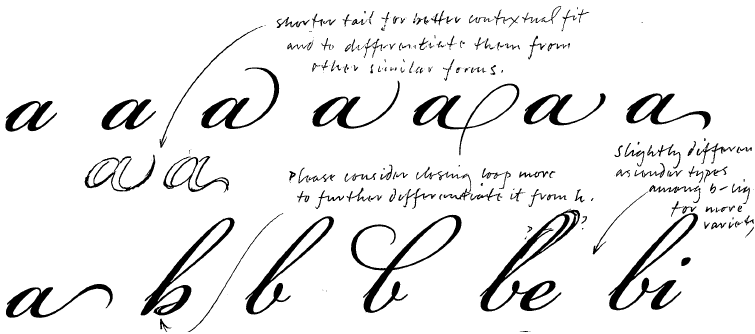 shorter tail for better contextual fit
and to differentiate them from
other similar forms.
a a a a a a a
a a
Please consider closing loop more
to further differentiate it from h.
Slightly differen
ascender types
among b-lig
for more
variety
a b b b be bi
? ?